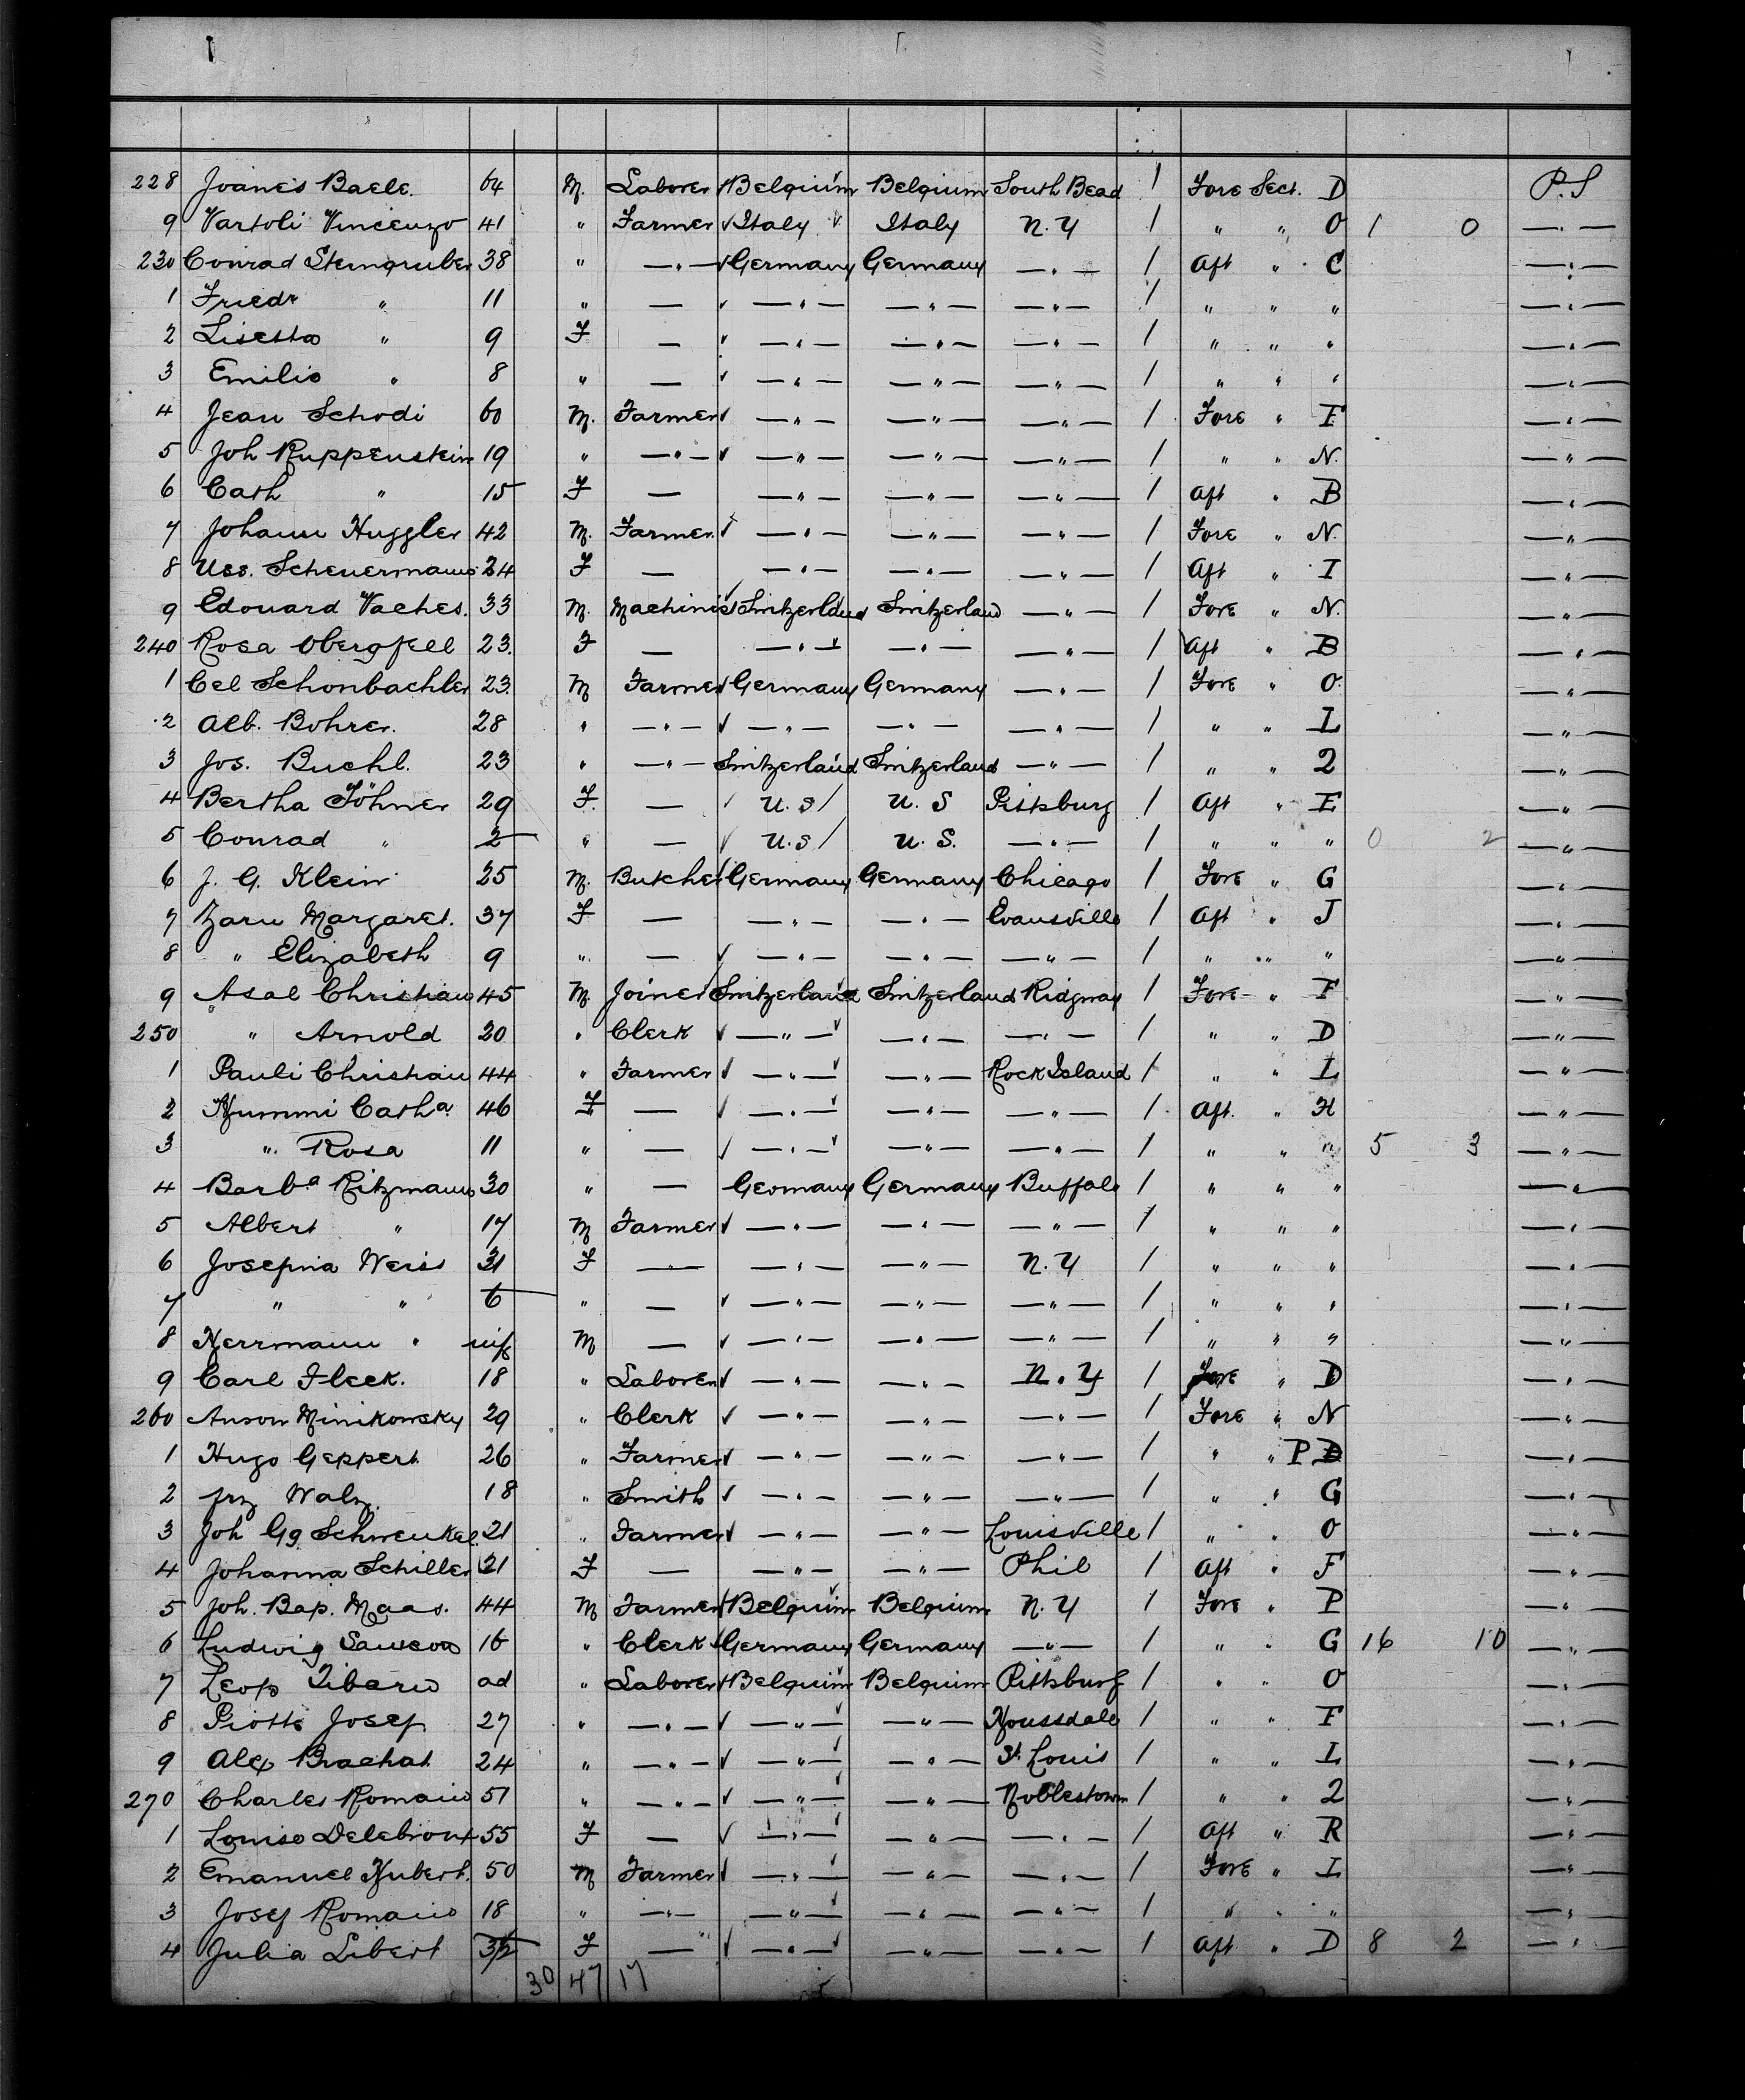 228 Joanes Baele. 64 M. Laborer Belgium Belgium South Bead 1 Fore Sect. D P.S
9 Vartoli Vincenzo 41 " Farmer Italy Italy N.Y 1 " " O 1 0 —"—
230 Conrad Sterngruber 38 " —"— Germany Germany —"— 1 Aft " C —"—
1 Friedr " 11 " — —"— —"— —"— 1 " " " —"—
2 Lisetta " 9 F — —"— —"— —"— 1 " " " —"—
3 Emilie " 8 " — —"— —"— —"— 1 " " " —"—
4 Jean Schodi 60 M. Farmer —"— —"— —"— 1 Fore " F —"—
5 Joh Ruppenstein 19 " —"— —"— —"— —"— 1 " " N. —"—
6 Cath " 15 F — —"— —"— —"— 1 Aft " B —"—
7 Johann Huggler 42 M. Farmer. —"— —"— —"— 1 Fore " N. —"—
8 Scheuermann 24 F — —"— —"— —"— 1 Aft " I —"—
9 Edouard Vaches. 33 M. Machinist Switzerland Switzerland —"— 1 Fore " N. —"—
240 Rosa Obergfell 23. F — —"— —"— —"— 1 Aft " B —"—
1 Cel Schonbachler 23. M Farmer Germany Germany —"— 1 Fore " O. —"—
2 Alb. Bohrer. 28 " —"— —"— —"— —"— 1 " " L —"—
3 Jos. Buehl. 23 " —"— Switzerland Switzerland —"— 1 " " 2 —"—
4 Bertha Föhner 29 F. — U.S U.S Pittsburg 1 Aft " E —"—
5 Conrad " 2 " — U.S U.S. —"— 1 " " " 0 2 —"—
6 J. G. Klein 25 M. Butcher Germany Germany Chicago 1 Fore " G —"—
7 Zarn Margaret. 37 F — —"— —"— Evansville 1 Aft " J —"—
8 " Elizabeth 9 " — —"— —"— —"— 1 " " " —"—
9 Asal Christian 45 M. Joiner Switzerland Switzerland Ridgway 1 Fore " F —"—
250 " Arnold 20 " Clerk —"— —"— —"— 1 " " D —"—
1 Pauli Christian 44 " Farmer —"— —"— Rock Island 1 " " L —"—
2 Hummi Catha 46 F — —"— —"— —"— 1 Aft. " H —"—
3 " Rosa 11 " — —"— —"— —"— 1 " " " 5 3 —"—
4 Barba Ritzmann 30 " — Germany Germany Buffalo 1 " " " —"—
5 Albert " 17 M Farmer —"— —"— —"— 1 " " " —"—
6 Josepina Weiss 31 F — —"— —"— N.Y 1 " " " —"—
7 " " 6 " — —"— —"— —"— 1 " " " —"—
8 Herrmann " inf M — —"— —"— —"— 1 " " " —"—
9 Carl Fleck. 18 " Laborer —"— —"— N.Y 1 Fore " D —"—
260 Anson Minikowsky 29 " Clerk —"— —"— —"— 1 Fore " N —"—
1 Hugo Geppert 26 " Farmer —"— —"— —"— 1 " " P —"—
2 Frz Walz. 18 " Smith —"— —"— —"— 1 " " G —"—
3 Joh Gg Schwenkel. 21 " Farmer —"— —"— Louisville 1 " " O —"—
4 Johanna Schiller 21 F — —"— —"— Phil 1 Aft " F —"—
5 Joh. Bap. Maas. 44 M Farmer Belgium Belgium N.Y 1 Fore " P —"—
6 Ludwig 16 " Clerk Germany Germany —"— 1 " " G 16 10 —"—
7 Leop Libario ad " Laborer Belgium Belgium Pittsburg 1 " " O —"—
8 Piotte Josef 27 " —"— —"— —"— Houssdale 1 " " F —"—
9 Alex Brachat 24 " —"— —"— —"— St. Louis 1 " " L —"—
270 Charles Romain 51 " —"— —"— —"— Noblestown 1 " " 2 —"—
1 Louise Delebroux 55 F — —"— —"— —"— 1 Aft " R —"—
2 Emanuel Hubert. 50 M Farmer —"— —"— —"— 1 Fore " L —"—
3 Josef Romain 18 " —"— —"— —"— —"— 1 " " " —"—
4 Julia Libert F — —"— —"— —"— 1 Aft " D 8 2 —"—
30 47 17